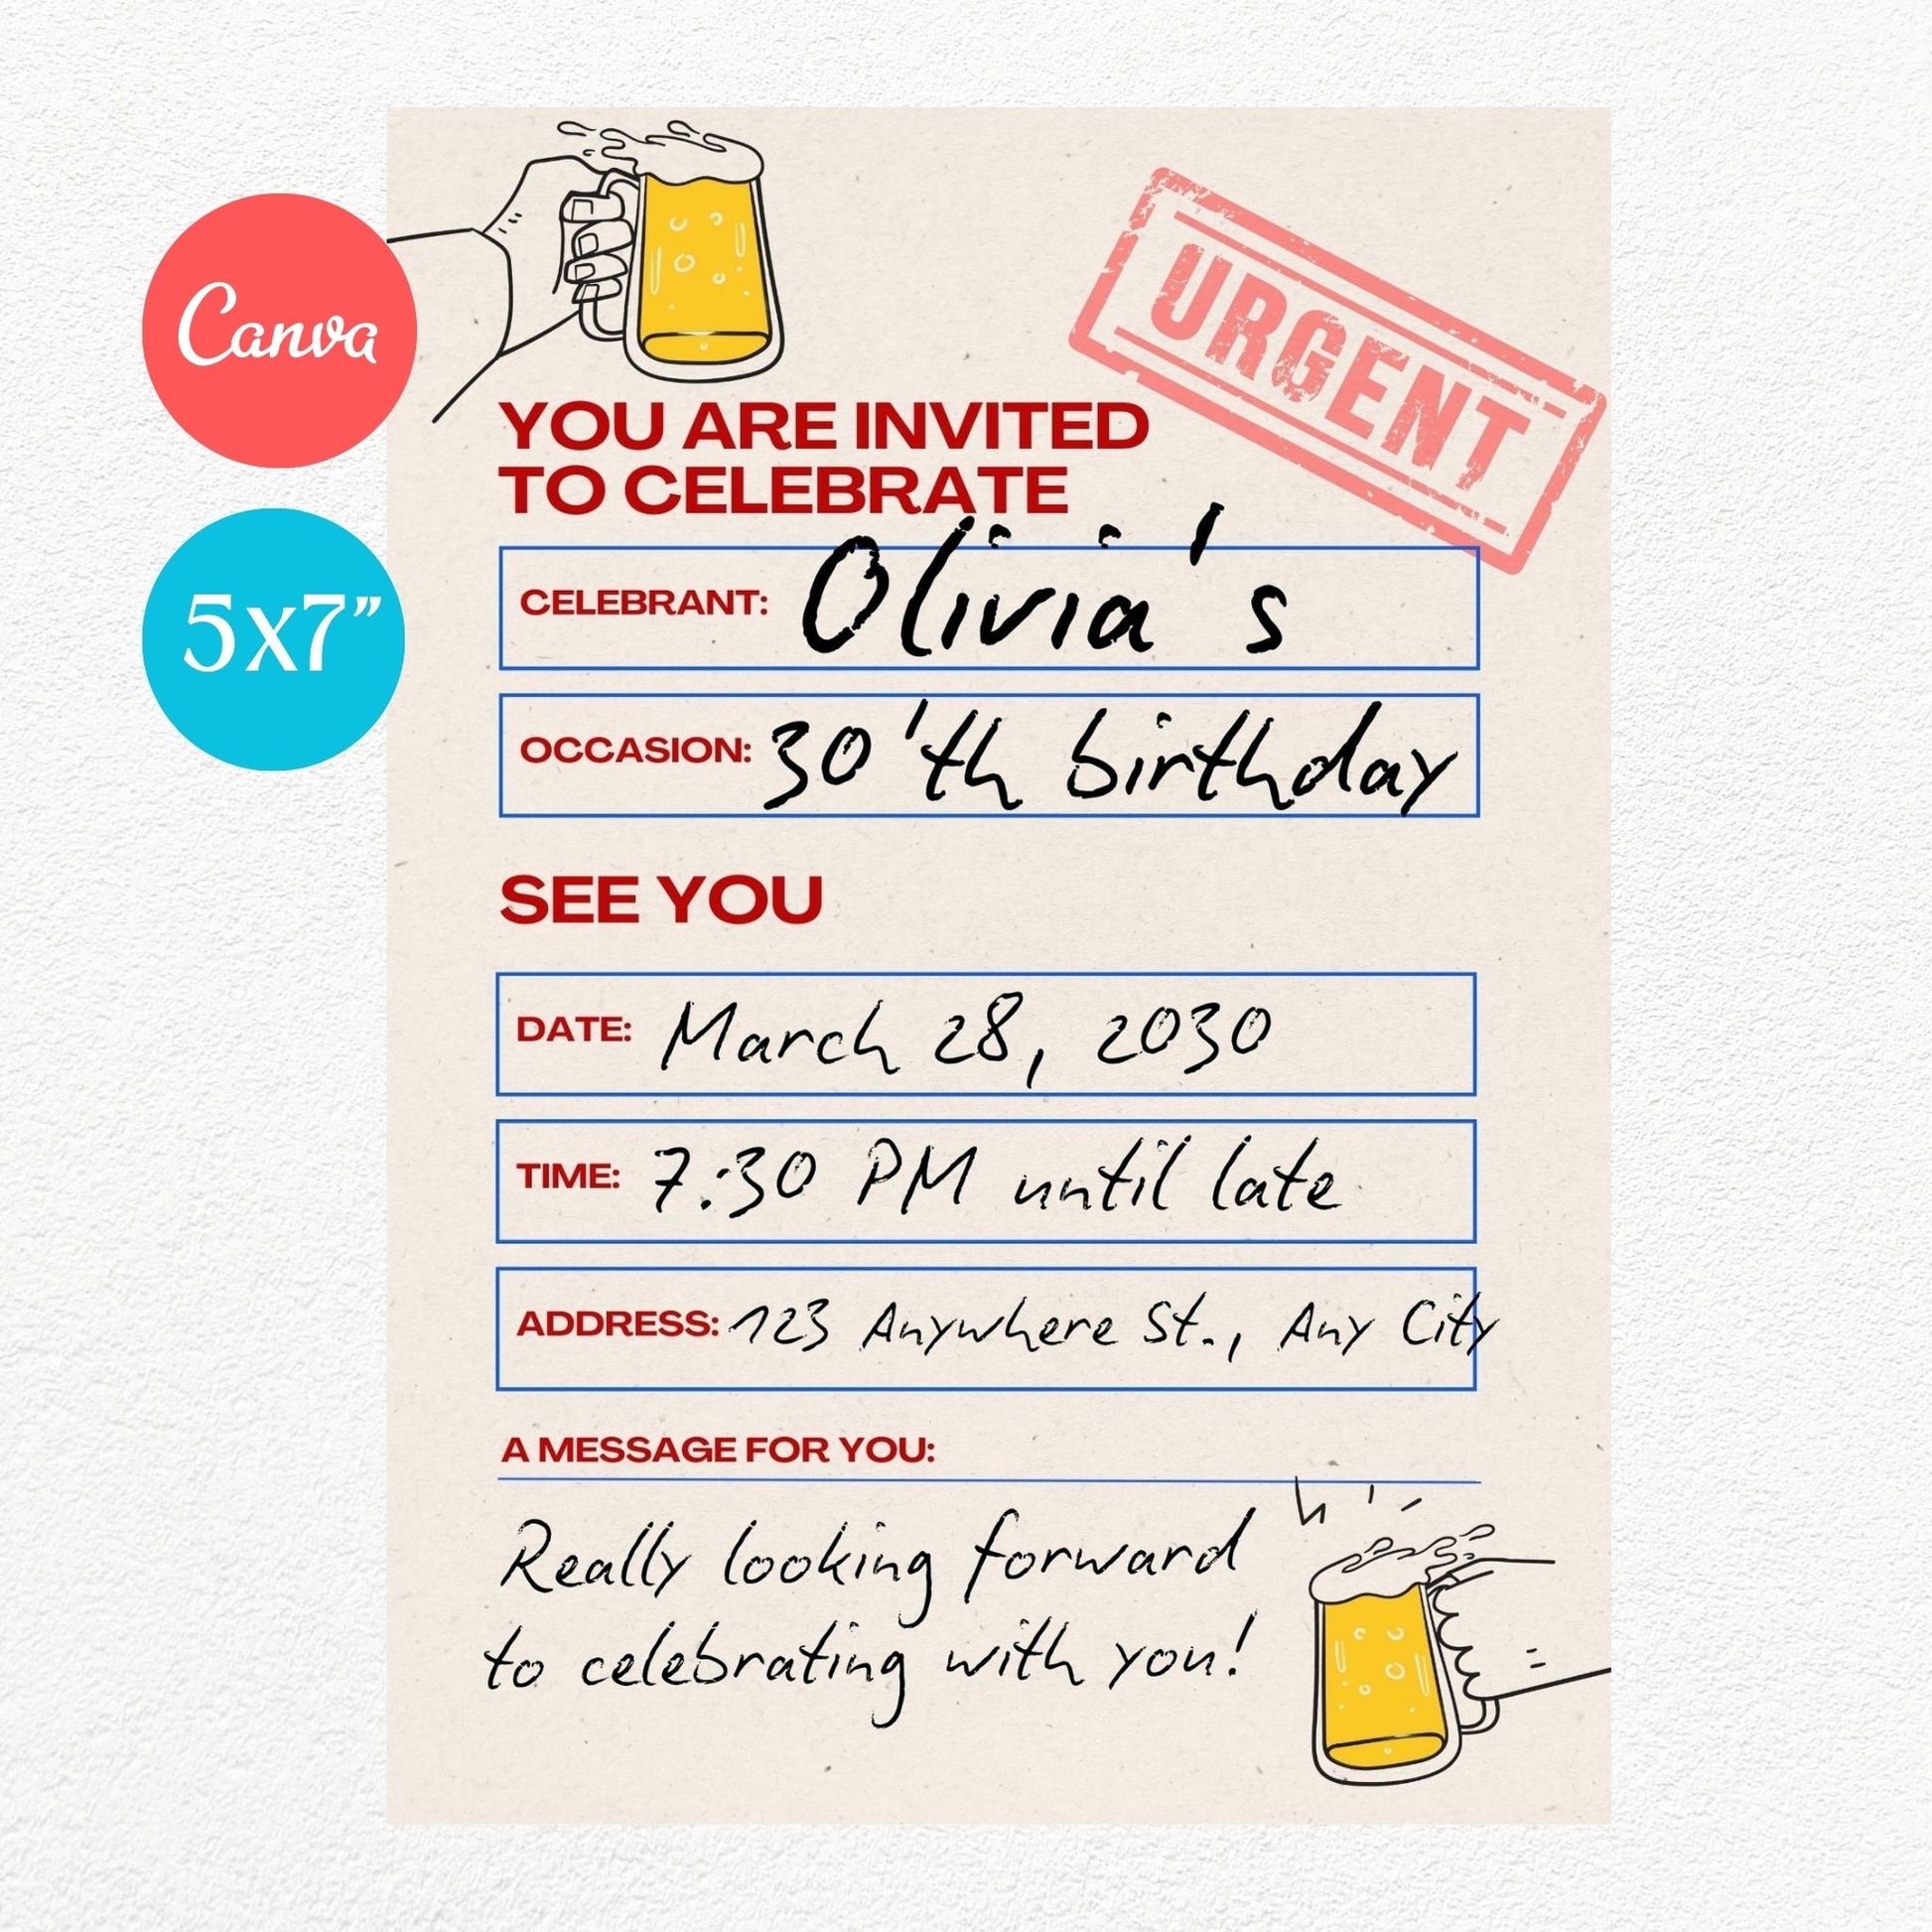 Canva
5x7”
URGENT
YOU ARE INVITED
TO CELEBRATE
CELEBRANT: Olivia's
OCCASION: 30'th birthday
SEE YOU
DATE: March 28, 2030
TIME: 7:30 PM until late
ADDRESS: 123 Anywhere St., Any City
A MESSAGE FOR YOU:
Really looking forward
to celebrating with you!